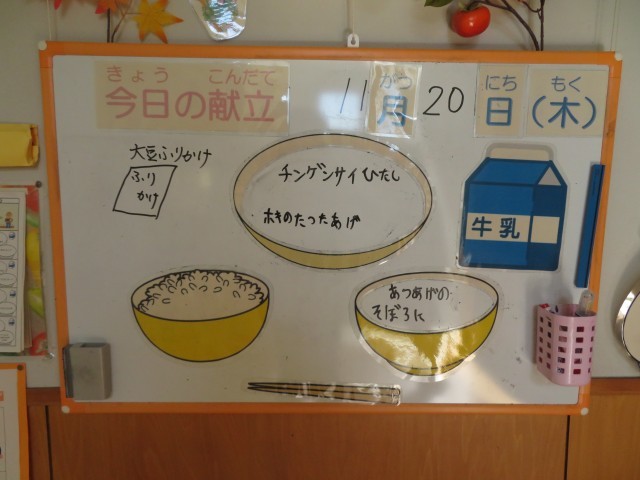 きょう こんだて
今日の献立
11 月 20 日 (木)
がつ にち もく
大豆ふりかけ
ふり
かけ
チンゲンサイひたし
ホキのたつたあげ
牛乳
あつあげの
そぼろに